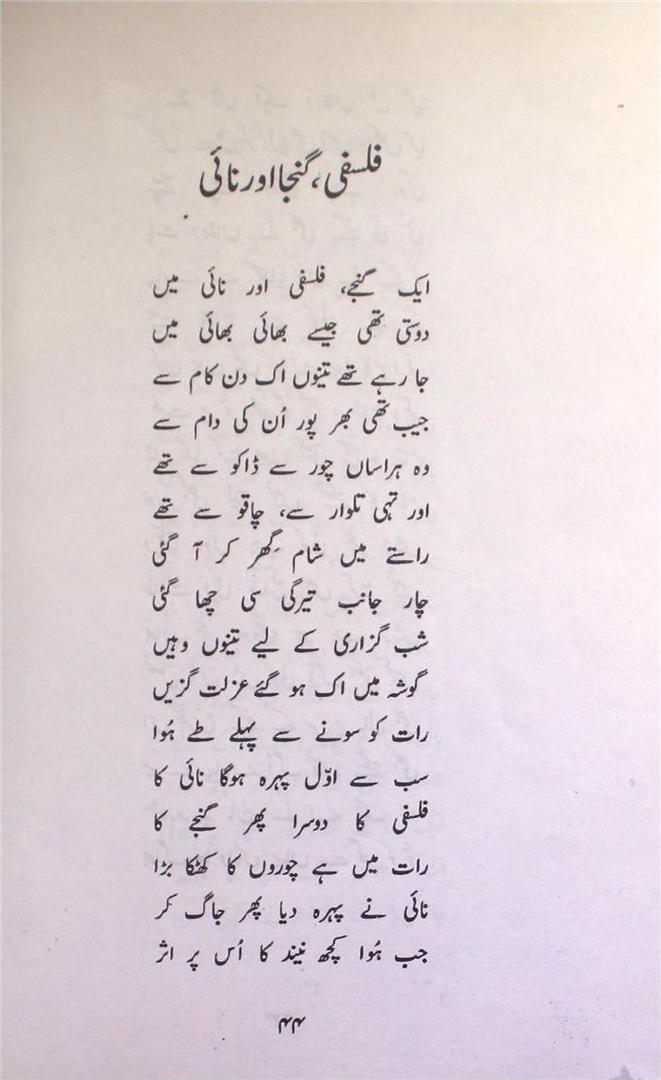 فلسفی، گنجا اور نائی
ایک گنجے، فلسفی اور نائی میں
دوستی تھی جیسے بھائی بھائی میں
جا رہے تھے تینوں اک دن کام سے
جیب تھی بھر پور اُن کی دام سے
وہ ہراساں چور سے ڈاکو سے تھے
اور تہی تلوار سے، چاقو سے تھے
راستے میں شام گِھر کر آ گئی
چار جانب تیرگی سی چھا گئی
شب گزاری کے لیے تینوں وہیں
گوشہ میں اک ہو گئے عزلت گزیں
رات کو سونے سے پہلے طے ہُوا
سب سے اوّل پہرہ ہوگا نائی کا
فلسفی کا دوسرا پھر گنجے کا
رات میں ہے چوروں کا کھٹکا بڑا
نائی نے پہرہ دیا پھر جاگ کر
جب ہُوا کچھ نیند کا اُس پر اثر
۴۴